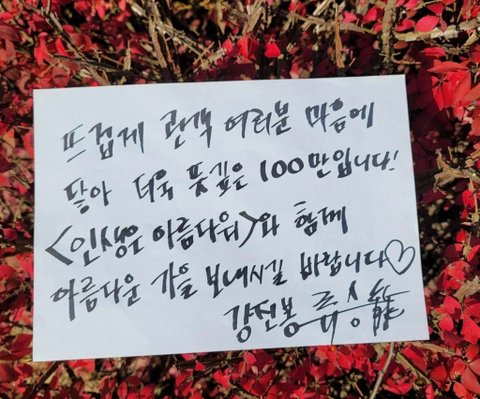 뜨겁게 관객 여러분 마음에
닿아 더욱 뜻깊은 100만입니다!
<인생은 아름다워>와 함께
아름다운 가을 보내시길 바랍니다♡
강진봉